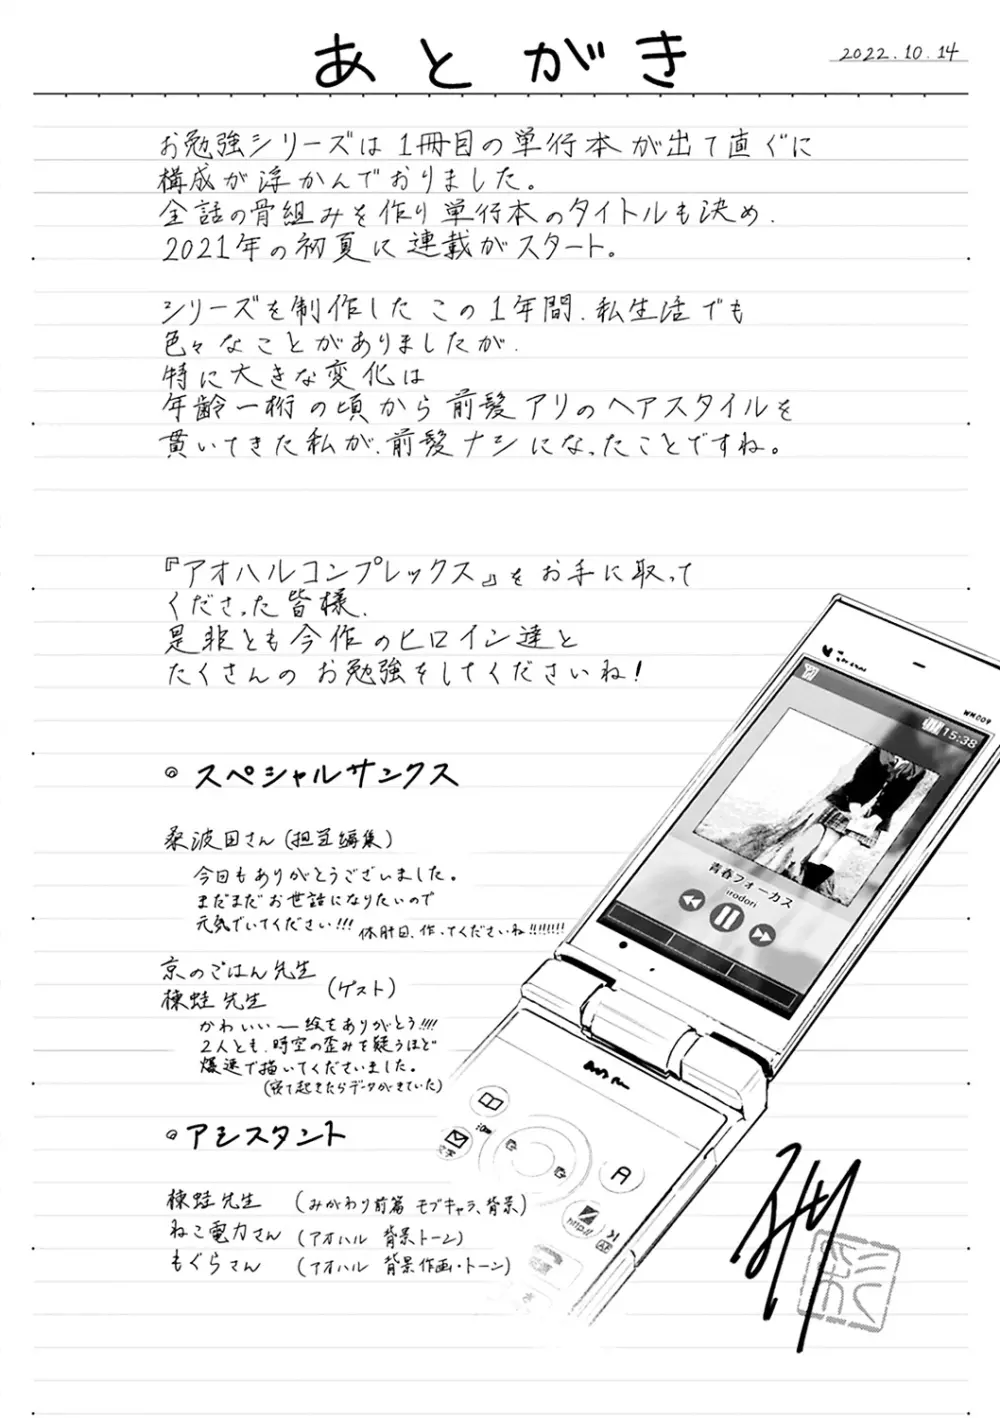 あとがき
2022.10.14
お勉強シリーズは1冊目の単行本が出て直ぐに
構成が浮かんでおりました。
全話の骨組みを作り単行本のタイトルも決め、
2021年の初夏に連載がスタート。
シリーズを制作したこの1年間、私生活でも
色々なことがありましたが、
特に大きな変化は
年齢一桁の頃から前髪アリのヘアスタイルを
貫いてきた私が、前髪ナシになったことですね。
『アオハルコンプレックス』をお手に取って
くださった皆様、
是非とも今作のヒロイン達と
たくさんのお勉強をしてくださいね!
◎スペシャルサンクス
桑波田さん(担当編集)
今回もありがとうございました。
まだまだお世話になりたいので
元気でいてください!!! 休肝日、作ってくださいね!!!!!!!
京のごはん先生
棟蛙先生
(ゲスト)
かわいいー絵をありがとう!!!!
2人とも、時空の歪みを疑うほど
爆速で描いてくださいました。
(寝て起きたらデータがきていた)
◎アシスタント
棟蛙先生 (みがわり前篇 モブキャラ、背景)
ねこ電力さん (アオハル 背景トーン)
もぐらさん (アオハル 背景作画・トーン)
WM009
15:38
青春フォーカス
irodori
文字
A
http://